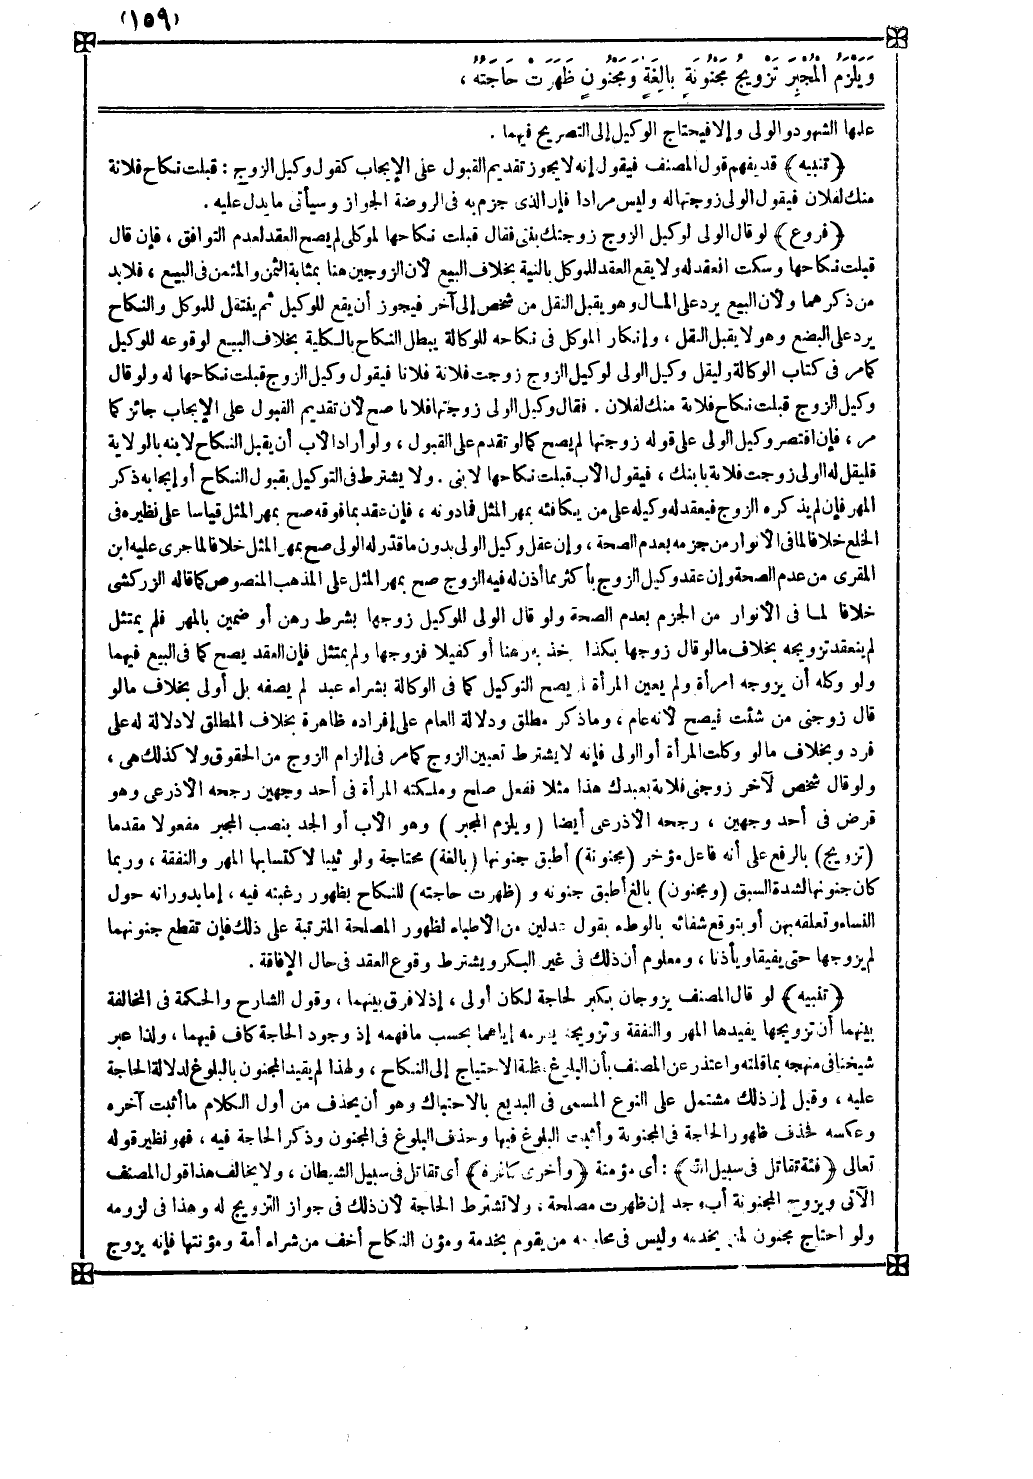 (١٥٩)
وَيَلْزَمُ الْمُجْبِرَ تَزْوِيجُ مَجْنُونَةٍ بَالِغَةٍ وَمَجْنُونٍ ظَهَرَتْ حَاجَتُهُ ،
علمها الشهود والولى وإلا فيحتاج الوكيل إلى التصريح فيهما .
﴿ تنبيه ﴾ قد يفهم قول المصنف فيقول إنه لا يجوز تقديم القبول على الإيجاب كقول وكيل الزوج : قبلت نكاح فلانة
منك لفلان فيقول الولى زوجتها له وليس مرادا فإن الذى جزم به فى الروضة الجواز وسيأتى ما يدل عليه .
﴿ فروع ﴾ لو قال الولى لوكيل الزوج زوجتك بنتى فقال قبلت نكاحها لموكلى لم يصح العقد لعدم التوافق ، فإن قال
قبلت نكاحها وسكت انعقد له ولا يقع العقد للموكل بالنية بخلاف البيع لأن الزوجين هنا بمثابة الثمن والمثمن فى البيع ، فلابد
من ذكرهما ولأن البيع يرد على المال وهو يقبل النقل من شخص إلى آخر فيجوز أن يقع للوكيل ثم ينتقل للموكل والنكاح
يرد على البضع وهو لا يقبل النقل ، وإنكار الموكل فى نكاحه للوكالة يبطل النكاح بالكلية بخلاف البيع لوقوعه للوكيل
كما مر فى كتاب الوكالة وليقل وكيل الولى لوكيل الزوج زوجت فلانة فلانا فيقول وكيل الزوج قبلت نكاحها له ولو قال
وكيل الزوج قبلت نكاح فلانة منك لفلان . فقال وكيل الولى زوجتها فلانا صح لأن تقديم القبول على الإيجاب جائز كما
مر ، فإن اقتصر وكيل الولى على قوله زوجتها لم يصح كما لو تقدم على القبول ، ولو أراد الأب أن يقبل النكاح لابنه بالولاية
فليقل له الولى زوجت فلانة بابنك ، فيقول الأب قبلت نكاحها لابنى . ولا يشترط فى التوكيل بقبول النكاح أو إيجابه ذكر
المهر فإن لم يذكره الزوج فيعقد له وكيله على من يكافئه بمهر المثل فما دونه ، فإن عقد بما فوقه صح بمهر المثل قياسا على نظيره فى
الخلع خلافا لما فى الأنوار من جزمه بعدم الصحة ، وإن عقل وكيل الولى بدون ما قدر له الولى صح بمهر المثل خلافا لما جرى عليه ابن
المقرى من عدم الصحة وإن عقد وكيل الزوج بأكثر مما أذن له فيه الزوج صح بمهر المثل على المذهب المنصوص كما قاله الزركشى
خلافا لما فى الأنوار من الجزم بعدم الصحة ولو قال الولى للوكيل زوجها بشرط رهن أو ضمين بالمهر فلم يمتثل
لم ينعقد تزويجه بخلاف ما لو قال زوجها بكذا وخذ به رهنا أو كفيلا فزوجها ولم يمتثل فإن العقد يصح كما فى البيع فيهما
ولو وكله أن يزوجه امرأة ولم يعين المرأة لم يصح التوكيل كما فى الوكالة بشراء عبد لم يصفه بل أولى بخلاف ما لو
قال زوجنى من شئت فيصح لأنه عام ، وما ذكر مطلق ودلالة العام على إفراده ظاهرة بخلاف المطلق لا دلالة له على
فرد وبخلاف ما لو وكلت المرأة أو الولى فإنه لا يشترط تعيين الزوج كما مر فى إلزام الزوج من الحقوق ولا كذلك هى ،
ولو قال شخص لآخر زوجنى فلانة بعبدك هذا مثلا ففعل صلح وملكته المرأة فى أحد وجهين رجحه الأذرعى وهو
قرض فى أحد وجهين ، رجحه الأذرعى أيضا ( ويلزم المجبر ) وهو الأب أو الجد بنصب المجبر مفعولا مقدما
(تزويج) بالرفع على أنه فاعل مؤخر (مجنونة) أطبق جنونها (بالغة) محتاجة ولو ثيبا لاكتسابها المهر والنفقة ، وربما
كان جنونها لشدة السبق (ومجنون) بالغ أطبق جنونه و (ظهرت حاجته) للنكاح بظهور رغبته فيه ، إما بدورانه حول
النساء وتعلقه بهن أو بتوقع شفائه بالوطء بقول عدلين من الأطباء لظهور المصلحة المترتبة على ذلك فإن تقطع جنونهما
لم يزوجها حتى يفيقا ويأذنا ، ومعلوم أن ذلك فى غير البكر ويشترط وقوع العقد فى حال الإفاقة .
﴿ تنبيه ﴾ لو قال المصنف يزوجان بكبر لحاجة لكان أولى ، إذ لا فرق بينهما ، وقول الشارح والحكمة فى المخالفة
بينهما أن تزويجها يفيدها المهر والنفقة وتزويجه يغرمه إياهما بحسب ما فهمه إذ وجود الحاجة كاف فيهما ، ولذا عبر
شيخنا فى منهجه بما قلته واعتذر عن المصنف بأن البلوغ مظنة الاحتياج إلى النكاح ، ولهذا لم يقيد المجنون بالبلوغ لدلالة الحاجة
عليه ، وقيل إن ذلك مشتمل على النوع المسمى فى البديع بالاحتباك وهو أن يحذف من أول الكلام ما أثبت آخره
وعكسه فحذف ظهور الحاجة فى المجنونة وأثبت البلوغ فيها وحذف البلوغ فى المجنون وذكر الحاجة فيه ، فهو نظير قوله
تعالى ﴿ فئة تقاتل فى سبيل الله ﴾ : أى مؤمنة ﴿ وأخرى كافرة ﴾ أى تقاتل فى سبيل الشيطان ، ولا يخالف هذا قول المصنف
الآتى ويزوج المجنونة أب وجد إن ظهرت مصلحة ، ولا تشترط الحاجة لأن ذلك فى جواز التزويج له وهذا فى لزومه
ولو احتاج مجنون لمن يخدمه وليس فى محارمه من يقوم بخدمة ومؤن النكاح أخف من شراء أمة ومؤنتها فإنه يزوج